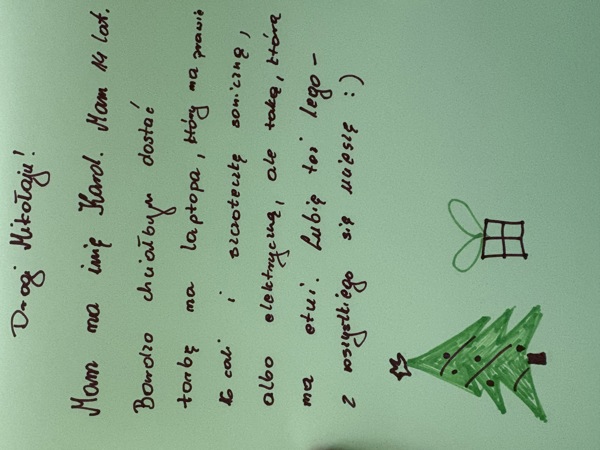 Drogi Mikołaju!
Mam na imię Karol. Mam 14 lat.
Bardzo chciałbym dostać
torbę na laptopa, który ma prawie
16 cali i szczoteczkę soniczną,
albo elektryczną, ale taką, która
ma etui. Lubię też lego -
z wszystkiego się ucieszę :)